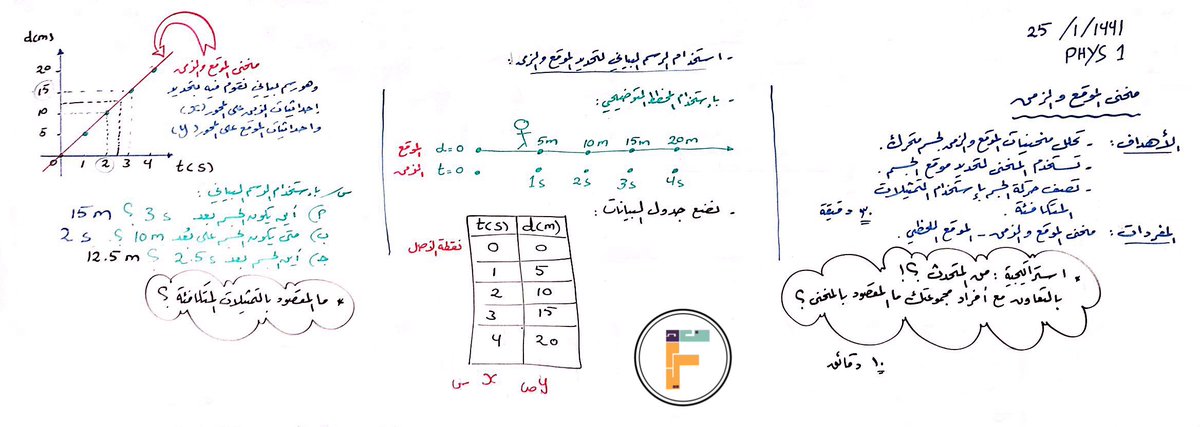 25 /1/1441
PHYS 1
منحنى الموقع والزمن
الأهداف : - تحلل منحنيات الموقع والزمن لجسم متحرك.
- تستخدم المنحنى لتحديد موقع الجسم.
- تصف حركة الجسم بإستخدام التمثيلات
المتكافئة. ٣٠ دقيقة
المفردات : منحنى الموقع والزمن - الموقع اللحظي.
* استراتيجية : من المتحدث ؟!
بالتعاون مع أفراد مجموعتك ما المقصود بالمنحنى ؟
١٠ دقائق
- استخدام الرسم البياني لتحديد الموقع والزمن :
- بإستخدام المخطط التوضيحي :
الموقع d=0 5m 10m 15m 20m
الزمن t=0 1s 2s 3s 4s
- نضع جدول البيانات :
t(s) d(m)
نقطة الأصل 0 0
1 5
2 10
3 15
4 20
س x ص y
d(m)
20
15
10
5
0 1 2 3 4 t(s)
منحنى الموقع والزمن
وهو رسم بياني نقوم فيه بتحديد
إحداثيات الزمن على المحور (x)
واحداثيات الموقع على المحور (y)
س/ بإستخدام الرسم البياني :
أ) أين يكون الجسم بعد 3 s ؟ 15 m
ب) متى يكون الجسم على بُعد 10m ؟ 2 s
ج) أين الجسم بعد 2.5s ؟ 12.5 m
* ما المقصود بالتمثيلات المتكافئة ؟